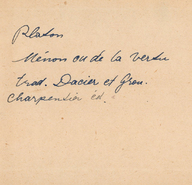 Platon
Ménon ou de la vertu
trad. Dacier et Grou.
Charpentier éd.